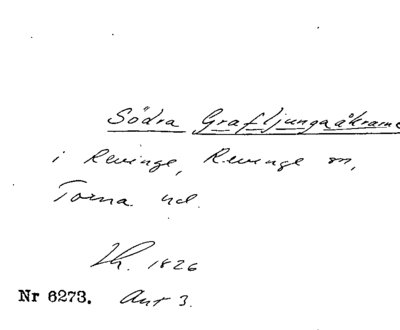 Södra Grafljungaåkrarne
i Revinge, Revinge sn,
Torna hd.
Lh. 1826
Nr 6273. Akt 3.